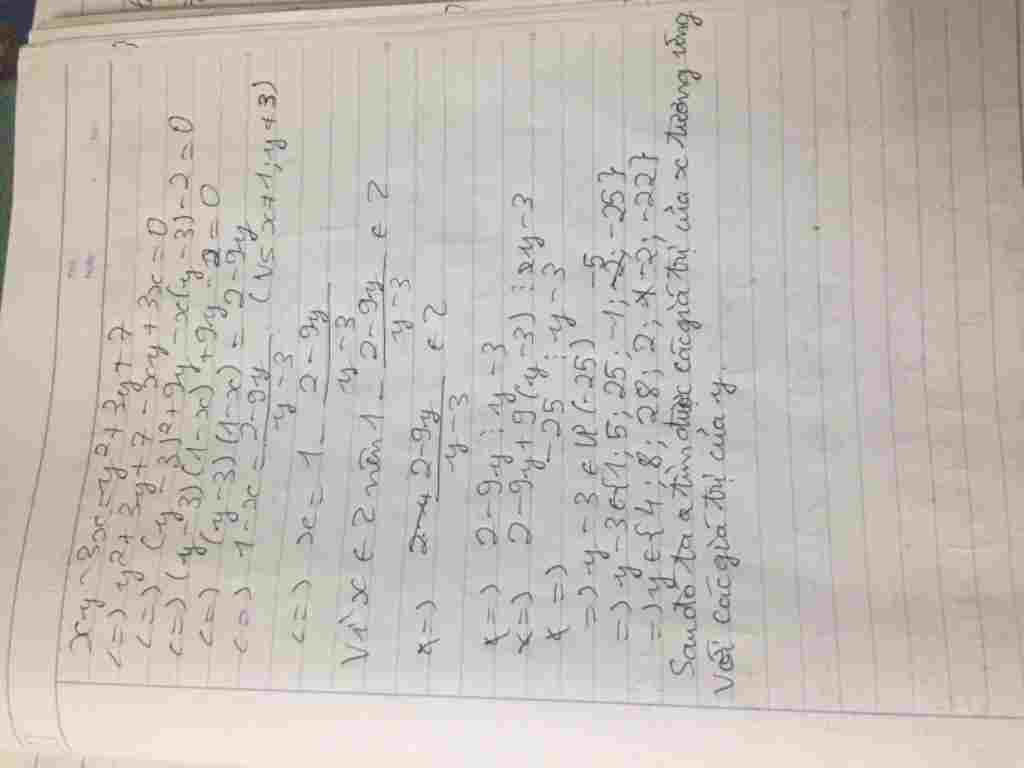 xy - 3x = y² + 3y + 7
<=> y² + 3y + 7 - xy + 3x = 0
<=> (y - 3)² + 9y - x(y - 3) - 2 = 0
<=> (y - 3)(1 - x) + 9y - 2 = 0
<=> (y - 3)(1 - x) = 2 - 9y
<=> 1 - x = 2 - 9y / y - 3 (Vs x + 1, y + 3)
<=> x = 1 - 2 - 9y / y - 3
Vì x ∈ Z nên 1 - 2 - 9y / y - 3 ∈ Z
=> 2 - 9y / y - 3 ∈ Z
=> 2 - 9y ⋮ y - 3
=> 2 - 9y + 9(y - 3) ⋮ y - 3
=> - 25 ⋮ y - 3
=> y - 3 ∈ Ư(-25)
=> y - 3 ∈ {1; 5; 25; -1; -5; -25}
=> y ∈ {4; 8; 28; 2; -2; -22}
Sau đó ta tìm được các giá trị của x tương ứng
với các giá trị của y.